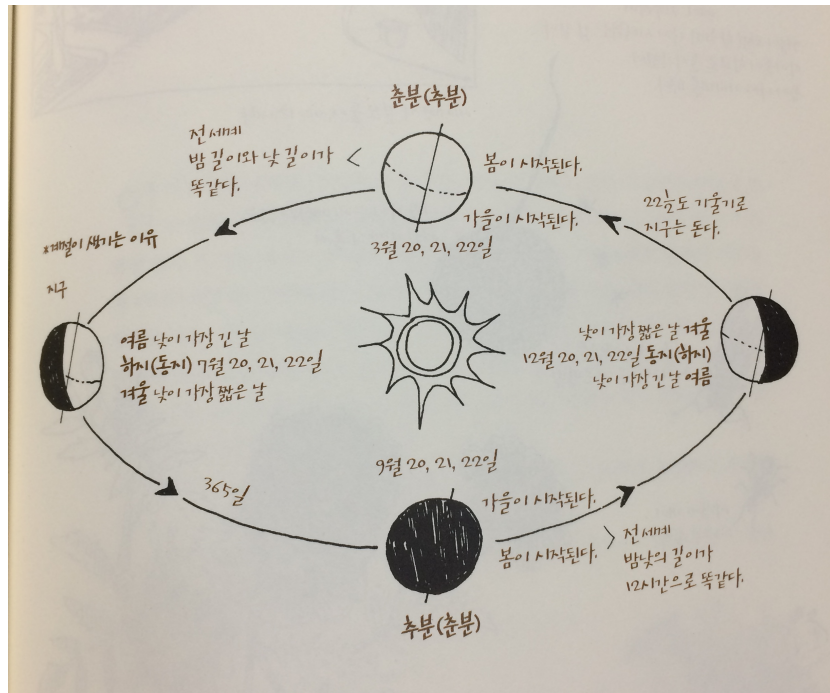 춘분(추분)
전 세계
밤 길이와 낮 길이가
똑같다.
봄이 시작된다.
가을이 시작된다.
3월 20, 21, 22일
22½도 기울기로
지구는 돈다.
*계절이 생기는 이유
지구
여름 낮이 가장 긴 날
하지(동지) 7월 20, 21, 22일
겨울 낮이 가장 짧은 날
낮이 가장 짧은 날 겨울
12월 20, 21, 22일 동지(하지)
낮이 가장 긴 날 여름
365일
9월 20, 21, 22일
가을이 시작된다.
봄이 시작된다.
전 세계
밤낮의 길이가
12시간으로 똑같다.
추분(춘분)